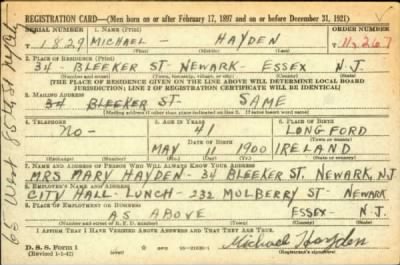 REGISTRATION CARD—(Men born on or after February 17, 1897 and on or before December 31, 1921)
SERIAL NUMBER 1. NAME (Print) ORDER NUMBER
T 1829 MICHAEL - HAYDEN 11,267
(First) (Middle) (Last)
2. PLACE OF RESIDENCE (Print)
34 - BLEEKER ST. NEWARK - ESSEX N.J.
(Number and street) (Town, township, village, or city) (County) (State)
[THE PLACE OF RESIDENCE GIVEN ON THE LINE ABOVE WILL DETERMINE LOCAL BOARD
JURISDICTION; LINE 2 OF REGISTRATION CERTIFICATE WILL BE IDENTICAL]
3. MAILING ADDRESS
34 BLEEKER ST- SAME
(Mailing address if other than place indicated on line 2. If same insert word same)
4. TELEPHONE 5. AGE IN YEARS 6. PLACE OF BIRTH
NO- 41 LONGFORD
DATE OF BIRTH (Town or county)
MAY 11 1900 IRELAND
(Exchange) (Number) (Mo.) (Day) (Yr.) (State or country)
7. NAME AND ADDRESS OF PERSON WHO WILL ALWAYS KNOW YOUR ADDRESS
MRS MARY HAYDEN - 34 BLEEKER ST. NEWARK, NJ
8. EMPLOYER'S NAME AND ADDRESS
CITY HALL - LUNCH - 232 MOLBERRY ST - NEWARK
9. PLACE OF EMPLOYMENT OR BUSINESS
AS ABOVE ESSEX - N.J.
(Number and street or R. F. D. number) (Town) (County) (State)
I AFFIRM THAT I HAVE VERIFIED ABOVE ANSWERS AND THAT THEY ARE TRUE.
D. S. S. Form 1
(Revised 1-1-42)
Michael Hayden
(Registrant's signature)